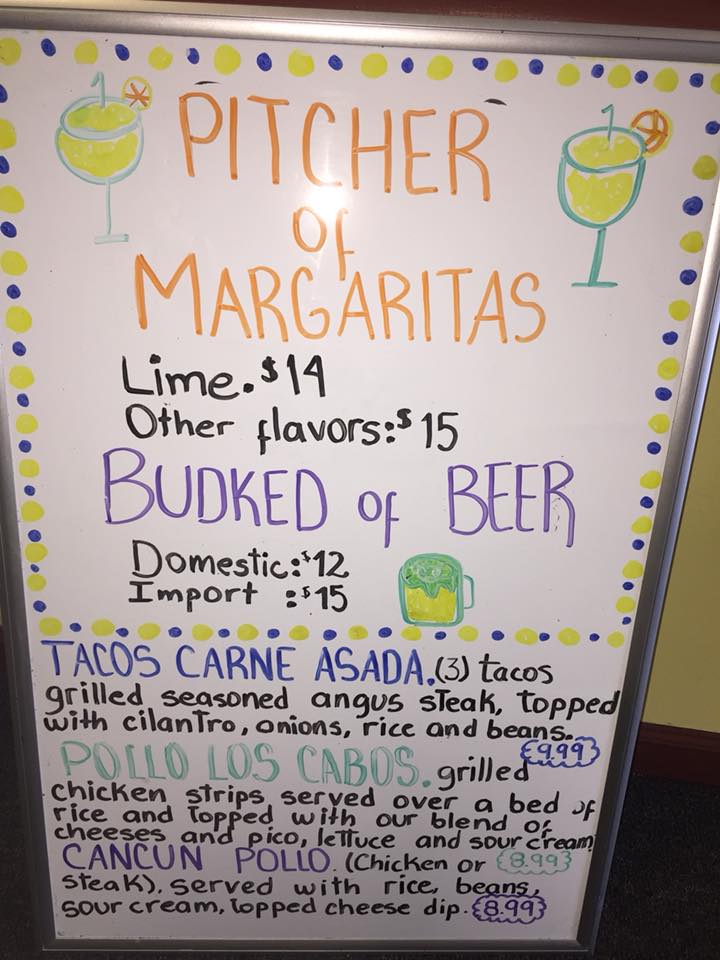 PITCHER
of
MARGARITAS
Lime. $14
Other flavors: $15
BUDKED of BEER
Domestic: $12
Import : $15
TACOS CARNE ASADA. (3) tacos
grilled seasoned angus steak, topped
with cilantro, onions, rice and beans.
9.99
POLLO LOS CABOS. grilled
chicken strips served over a bed of
rice and topped with our blend of
cheeses and pico, lettuce and sour cream
8.99
CANCUN POLLO. (Chicken or
steak). served with rice, beans,
sour cream, topped cheese dip. 8.99